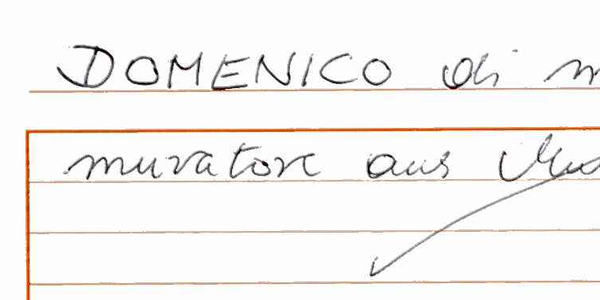 DOMENICO di
muratore aus